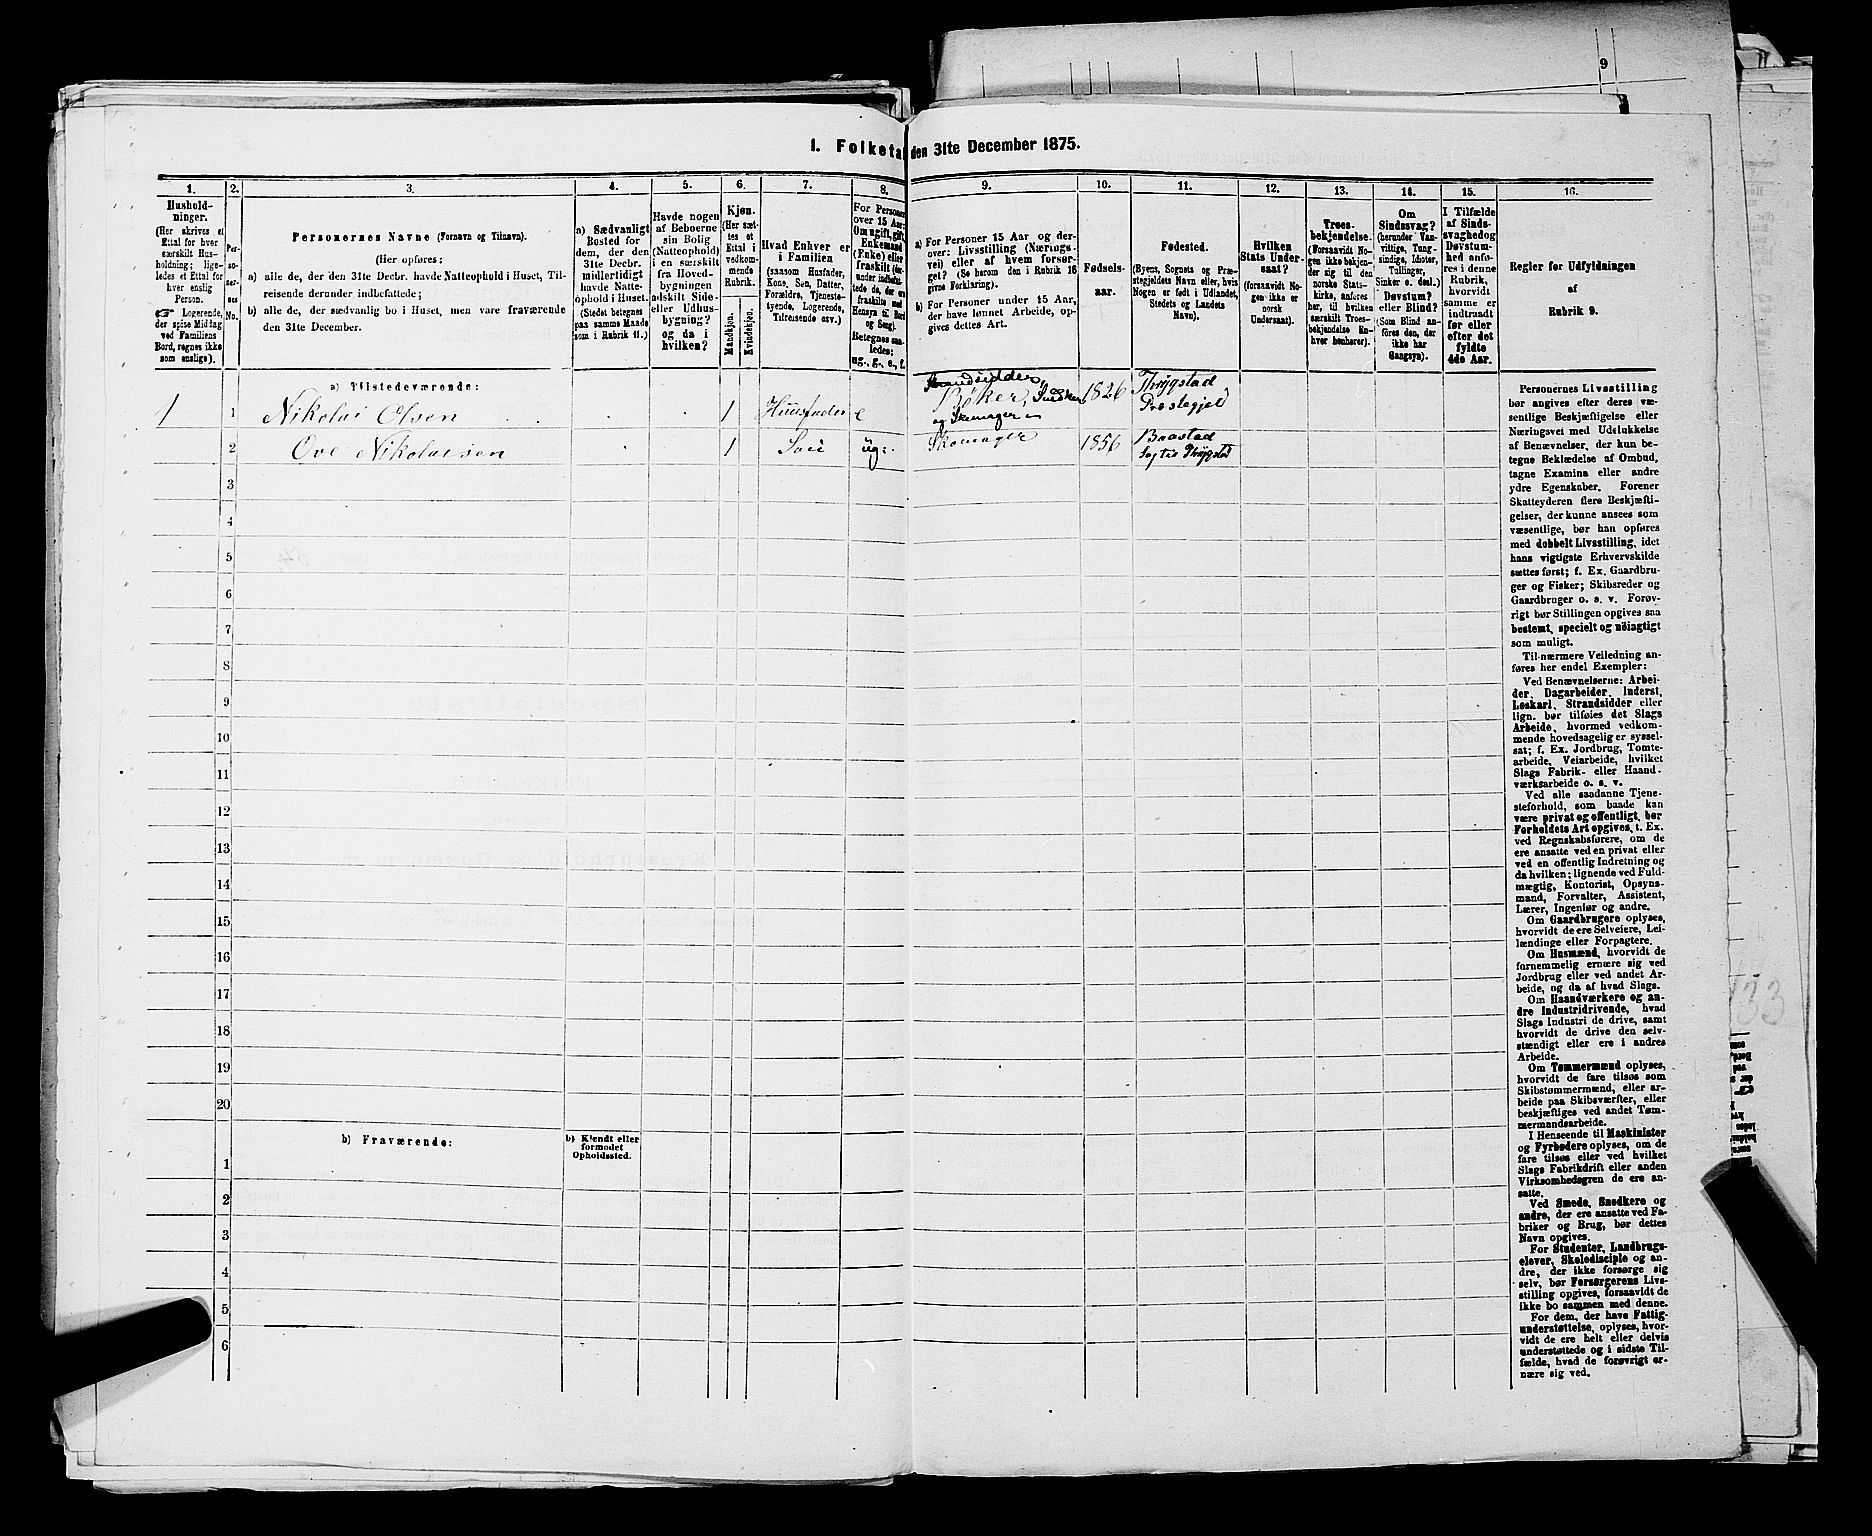 9
1. Folketal den 31te December 1875.
1.
2.
3.
4.
5.
6.
7.
8.
9.
10.
11.
12.
13.
14.
15.
16.
Hushold-
ninger.
(Her skrives et
Ettal for hver
særskilt Hus-
holdning; lige-
ledes et Ettal for
hver enslig
Person.
☞ Logerende,
der spise Middag
ved Familiens
Bord, regnes ikke
som enslige).
Per-
so-
ner-
nes
No.
Personernes Navne (Fornavn og Tilnavn).
(Her opføres:
a) alle de, der den 31te Decbr. havde Natteophold i Huset, Til-
reisende derunder indbefattede;
b) alle de, der sædvanlig bo i Huset, men vare fraværende
den 31te December.
a) Sædvanligt
Bosted for
dem, der den
31te Decbr.
midlertidigt
havde Natte-
ophold i Huset.
(Stedet betegnes
paa samme Maade
som i Rubrik 11.)
Havde nogen
af Beboerne
sin Bolig
(Natteophold)
i en særskilt
fra Hoved-
bygningen
adskilt Side-
eller Udhus-
bygning?
og da i
hvilken?
Kjøn.
(Her sæt-
tes et
Ettal i
vedkom-
mende
Rubrik.
Mandkjøn.
Kvindekjøn.
Hvad Enhver er
i Familien
(saasom Husfader,
Kone, Søn, Datter,
Forældre, Tjeneste-
tyende, Logerende,
Tilreisende osv.)
For Personer
over 15 Aar:
Om ugift, gift,
Enkemand
(Enke) eller
fraskilt (der-
under indbefat-
tede de, der ere
fraskilte med
Hensyn til Bord
og Seng).
Betegnes saa-
ledes:
ug., g., e., f.
a) For Personer 15 Aar og der-
over: Livsstilling (Nærings-
vei) eller af hvem forsør-
get? (Se herom den i Rubrik 16
givne Forklaring).
b) For Personer under 15 Aar,
der have lønnet Arbeide, op-
gives dettes Art.
Fødsels-
aar.
Fødested.
(Byens, Sognets og Præ-
stegjeldets Navn eller, hvis
Nogen er født i Udlandet,
Stedets og Landets
Navn).
Hvilken
Stats Under-
saat?
(forsaavidt No-
gen ikke er
norsk
Undersaat).
Troes-
bekjendelse.
(Forsaavidt No-
gen ikke bekjen-
der sig til den
norske Stats-
kirke, anføres
her, til hvilken
særskilt Troes-
bekjendelse En-
hver henhører).
Om
Sindssvag?
(herunder Van-
vittige, Tung-
sindige, Idioter,
Tullinger,
Sinker o. desl.)
Døvstum?
eller Blind?
(Som Blind an-
føres den, der
ikke har
Gangsyn).
I Tilfælde
af Sinds-
svaghed og
Døvstum-
hed anfø-
res i denne
Rubrik,
hvorvidt
samme er
indtraadt
før eller
efter det
fyldte
4de Aar.
Regler for Udfyldningen
af
Rubrik 9.
a) Tilstedeværende:
1 1 Nikolai Olsen 1 Huusfader e Strandsidder, Bøker, Snedker og Skomager 1826 Thrygstad Præstegjeld
2 Ove Nikolaisen 1 Søn ug: Skomager 1856 Baastad Thrygstad
3
4
5
6
7
8
9
10
11
12
13
14
15
16
17
18
19
20
b) Fraværende:
b) Kjendt eller
formodet
Opholdssted.
1
2
3
4
5
6
Personernes Livsstilling
bør angives efter deres væ-
sentlige Beskjæftigelse eller
Næringsvei med Udelukkelse
af Benævnelser, der kun be-
tegne Beklædelse af Ombud,
tagne Examina eller andre
ydre Egenskaber. Forener
Skatteyderen flere Beskjæfti-
gelser, der kunne ansees som
væsentlige, bør han opføres
med dobbelt Livsstilling, idet
hans vigtigste Erhvervskilde
sættes først; f. Ex. Gaardbru-
ger og Fisker; Skibsreder og
Gaardbruger o. s. v. Forøv-
rigt bør Stillingen opgives saa
bestemt, specielt og nøiagtigt
som muligt.
Til nærmere Veiledning an-
føres her endel Exempler:
Ved Benævnelserne: Arbei-
der, Dagarbeider, Inderst,
Løskarl, Strandsidder eller
lign. bør tilføies det Slags
Arbeide, hvormed vedkom-
mende hovedsagelig er syssel-
sat; f. Ex. Jordbrug, Tomte-
arbeide, Veiarbeide, hvilket
Slags Fabrik- eller Haand-
værksarbeide o. s. v.
Ved alle saadanne Tjene-
steforhold, som baade kan
være privat og offentligt, bør
Forholdets Art opgives, t. Ex.
ved Regnskabsførere, om de
ere ansatte ved en privat eller
ved en offentlig Indretning og
da hvilken; lignende ved Fuld-
mægtig, Kontorist, Opsyns-
mand, Forvalter, Assistent,
Lærer, Ingeniør og andre.
Om Gaardbrugere oplyses,
hvorvidt de ere Selveiere, Lei-
lændinge eller Forpagtere.
Om Husmænd, hvorvidt de
fornemmelig ernære sig ved
Jordbrug eller ved andet Ar-
beide, og da af hvad Slags.
Om Haandværkere og an-
dre Industridrivende, hvad
Slags Industri de drive, samt
hvorvidt de drive den selv-
stændigt eller ere i andres
Arbeide.
Om Tømmermænd oplyses,
hvorvidt de fare tilsøs som
Skibstømmermænd, eller ar-
beide paa Skibsværfter, eller
beskjæftiges ved andet Tøm-
mermandsarbeide.
I Henseende til Maskinister
og Fyrbødere oplyses, om de
fare tilsøs eller ved hvilket
Slags Fabrikdrift eller anden
Virksomhedsgren de ere an-
satte.
Ved Smede, Snedkere og
andre, der ere ansatte ved Fa-
briker og Brug, bør dettes
Navn opgives.
For Studenter, Landbrugs-
elever, Skoledisciple og an-
dre, der ikke forsørge sig
selv, bør Forsørgerens Livs-
stilling opgives, forsaavidt de
ikke bo sammen med denne.
For dem, der have Fattig-
understøttelse, oplyses, hvor-
vidt de ere helt eller delvis
understøttede og i sidste Til-
fælde, hvad de forøvrigt er-
nære sig ved.
133